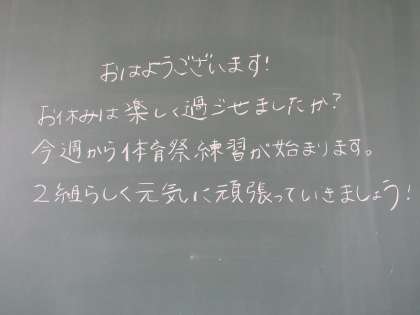 おはようございます!
お休みは楽しく過ごせましたか?
今週から体育祭練習が始まります。
2組らしく元気に頑張っていきましょう!